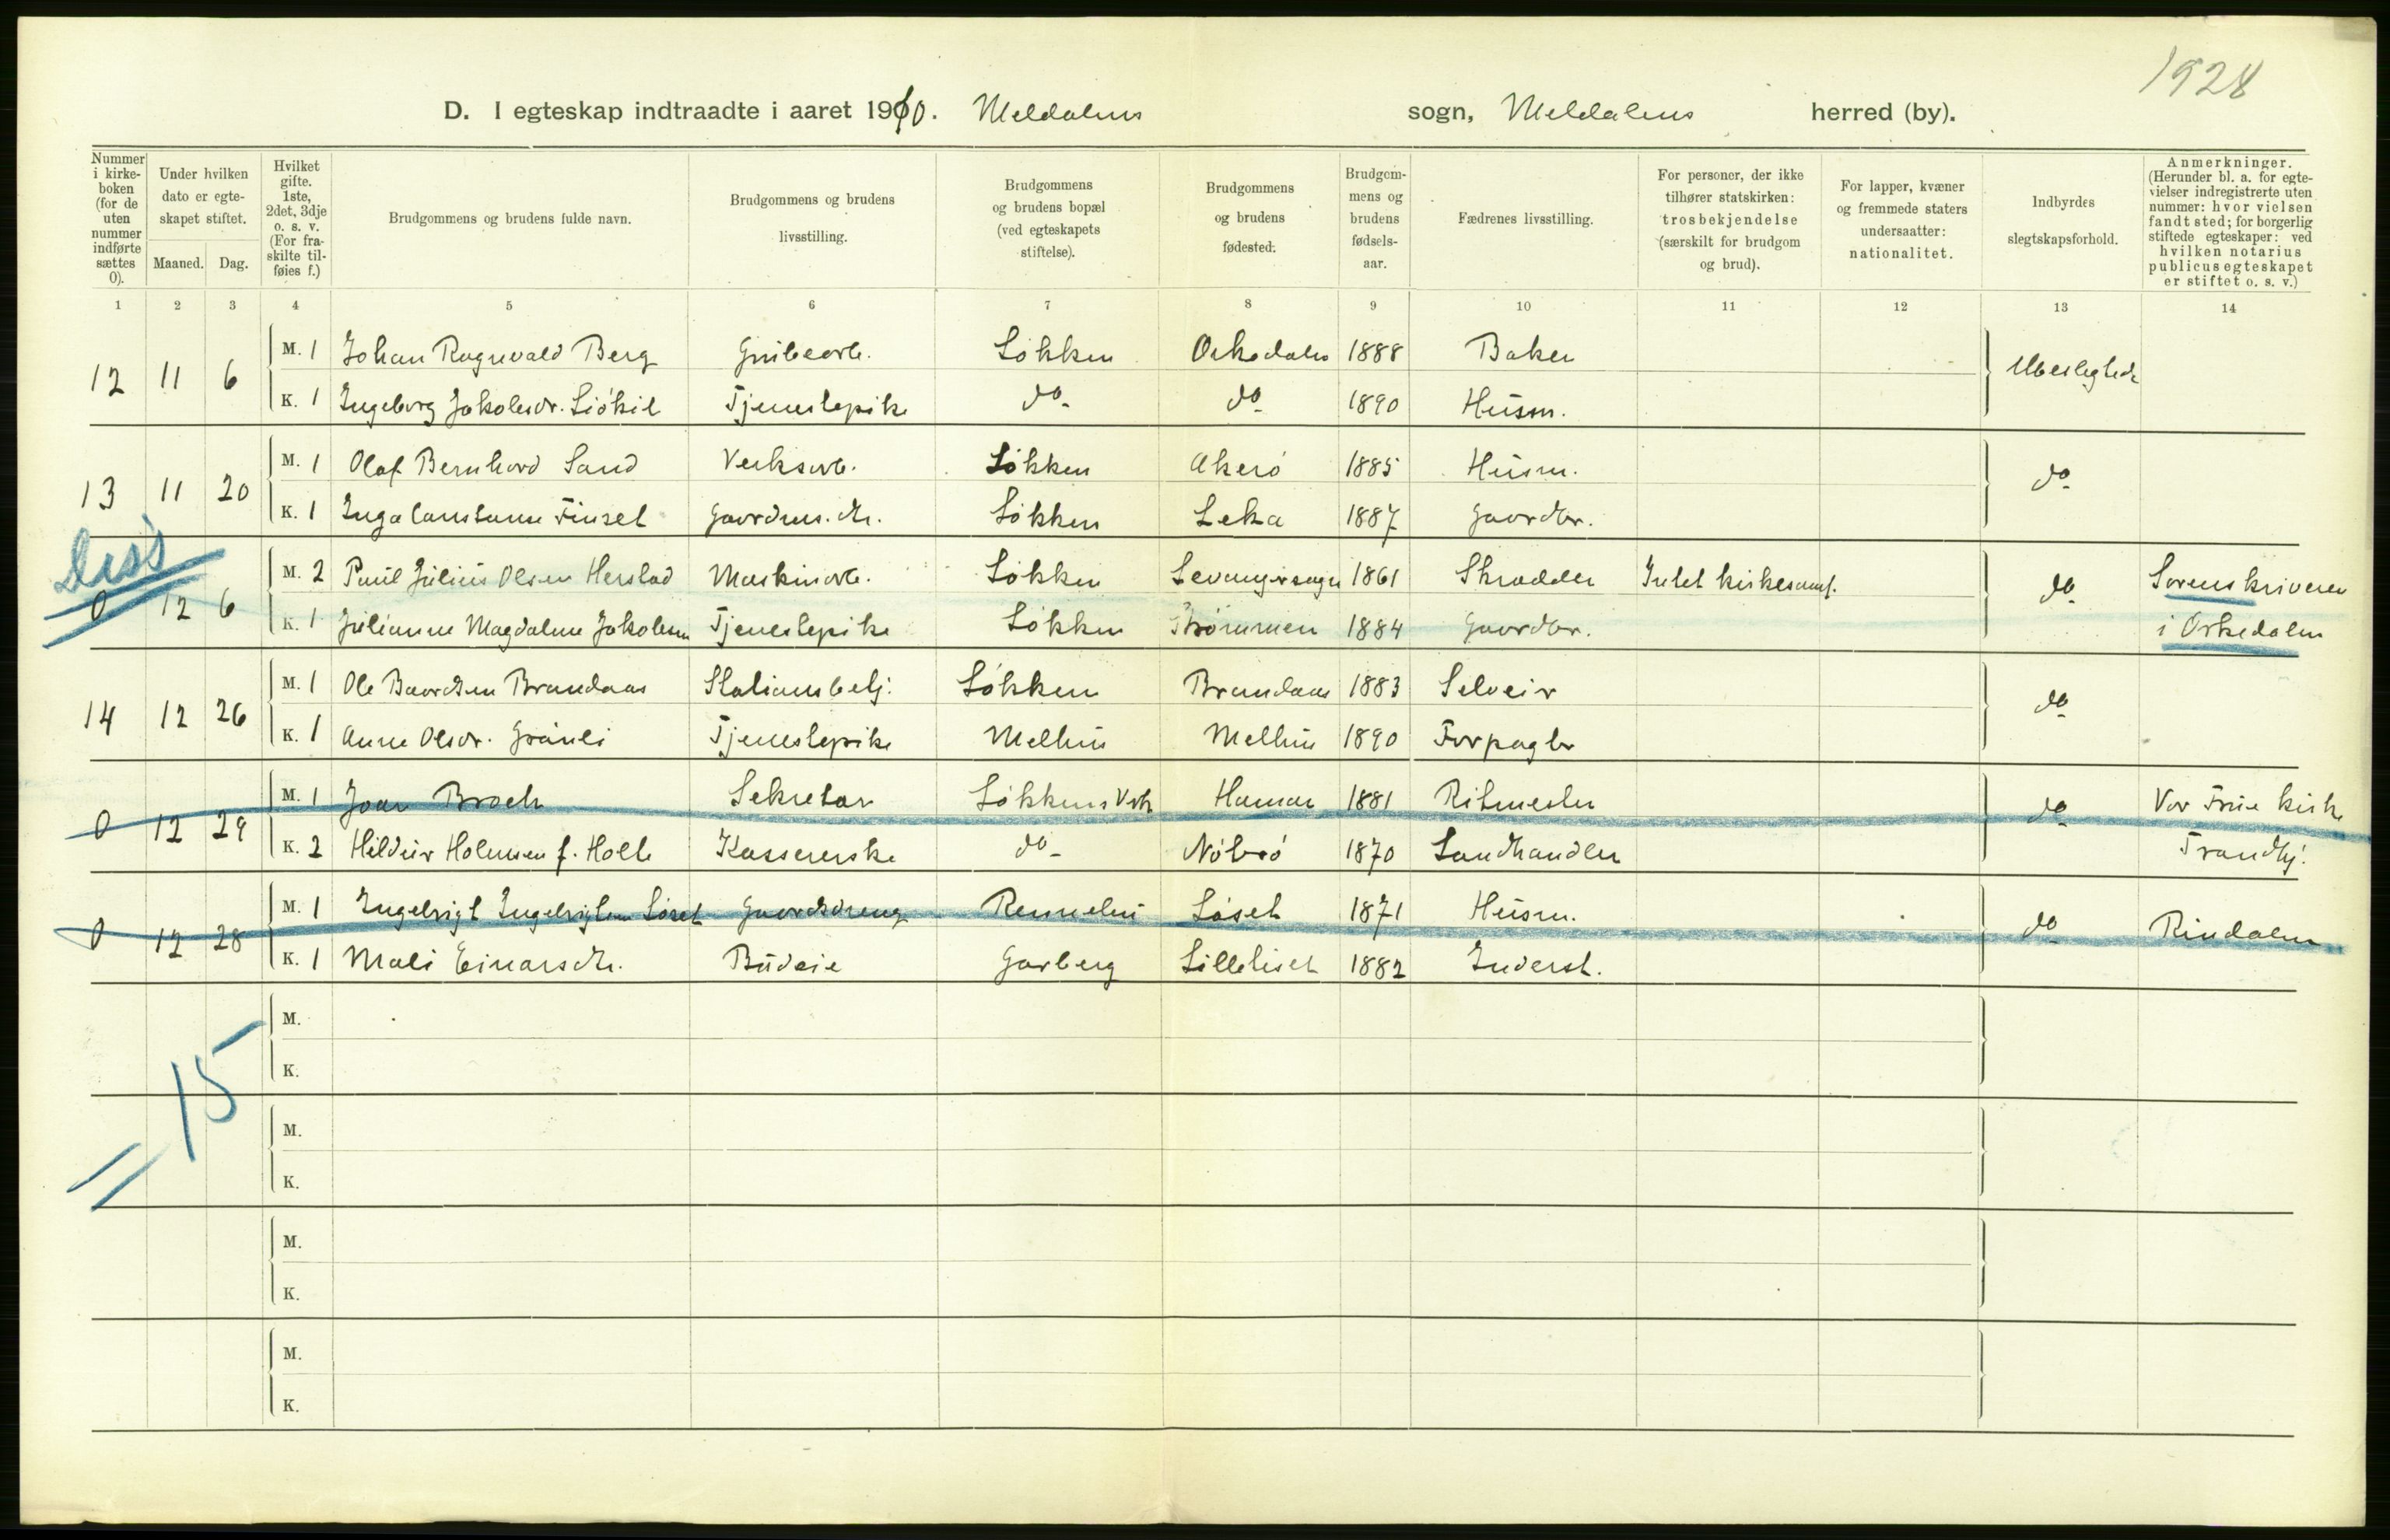 1928
D. I egteskap indtraadte i aaret 1910. Meldalens sogn, Meldalens herred (by).
Nummer i kirkeboken (for de uten nummer indførte sættes 0).
Under hvilken dato er egteskapet stiftet.
Maaned. Dag.
Hvilket gifte. 1ste, 2det, 3dje o. s. v. (For fraskilte tilføies f.)
Brudgommens og brudens fulde navn.
Brudgommens og brudens livsstilling.
Brudgommens og brudens bopæl (ved egteskapets stiftelse).
Brudgommens og brudens fødested.
Brudgommens og brudens fødselsaar.
Fædrenes livsstilling.
For personer, der ikke tilhører statskirken: trosbekjendelse (særskilt for brudgom og brud).
For lapper, kvæner og fremmede staters undersaatter: nationalitet.
Indbyrdes slegtskapsforhold.
Anmerkninger. (Herunder bl. a. for egtevielser indregistrerte uten nummer: hvor vielsen fandt sted; for borgerlig stiftede egteskaper: ved hvilken notarius publicus egteskapet er stiftet o. s. v.)
1 2 3 4 5 6 7 8 9 10 11 12 13 14
M. 1 Johan Ragnvald Berg Grubearb. Løkken Orkedalen 1888 Baker
12 11 6 Ubeslegtede
K. 1 Ingeborg Jakobsdr. Do. do. 1890 Husm.
M. 1 Olaf Bernhard Sand Verksarb. Løkken Akerø 1885 Husm.
13 11 20 do.
K. 1 Inga Constanse Finset Gaardms. dtr. Løkken Leka 1887 Gaardbr.
Diss
M. 2 Paul Julius Olsen Herstad Maskinarb. Løkken Levangersogn 1861 Skrædder Intet kirkesamf. Sorenskriveren
0 12 6 do.
K. 1 Julianne Magdalene Jakobsen Tjenestepike Løkken 1884 Gaardbr. i Orkedalen
M. 1 Ole Baardsen Brandaas Stationsbetj. Løkken Brandaas 1883 Selveier
14 12 26 do.
K. 1 Anne Olsdr. Grønli Tjenestepike Melhus Melhus 1890 Forpagter
M. 1 Joar Broch Sekretær Løkkens Verk Hamar 1881 Ritmester Vor Frue kirke
0 12 29 do.
K. 2 Holmsen f. Holte Kassererske do. 1870 Landhandler Trondhj.
M. 1 Ingebrigt Ingebrigtsen Løset Gaardsdreng Løset 1871 Husm.
0 12 28 do. Rindalen
K. 1 Mali Einarsdtr. Budeie Garberg Lilleliset 1882 Inderst.
M.
K.
15
M.
K.
M.
K.
M.
K.